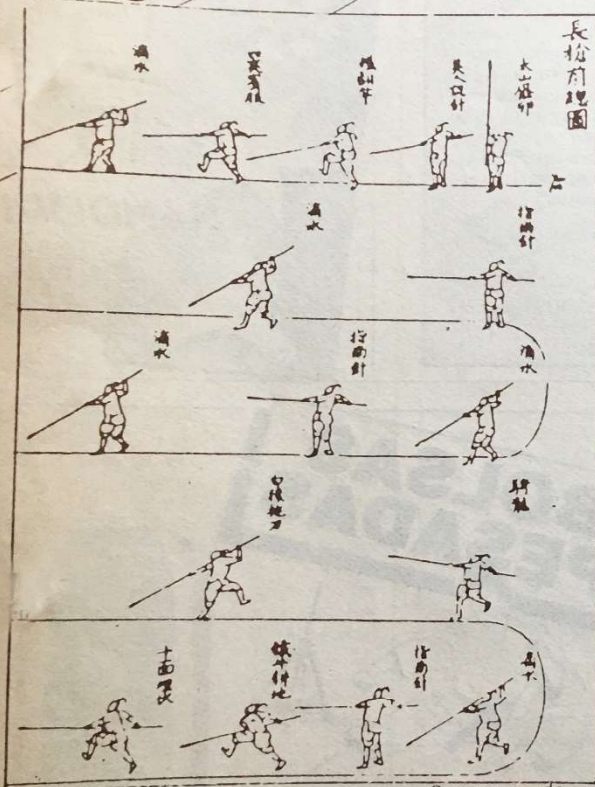 長槍前總圖
太山壓卵
美人認針
鐵翻竿
四夷賓服
滴水
起
指南針
滴水
滴水
指南針
滴水
騎龍
白猿拖刀
滴水
指南針
鐵牛耕地
十面埋伏